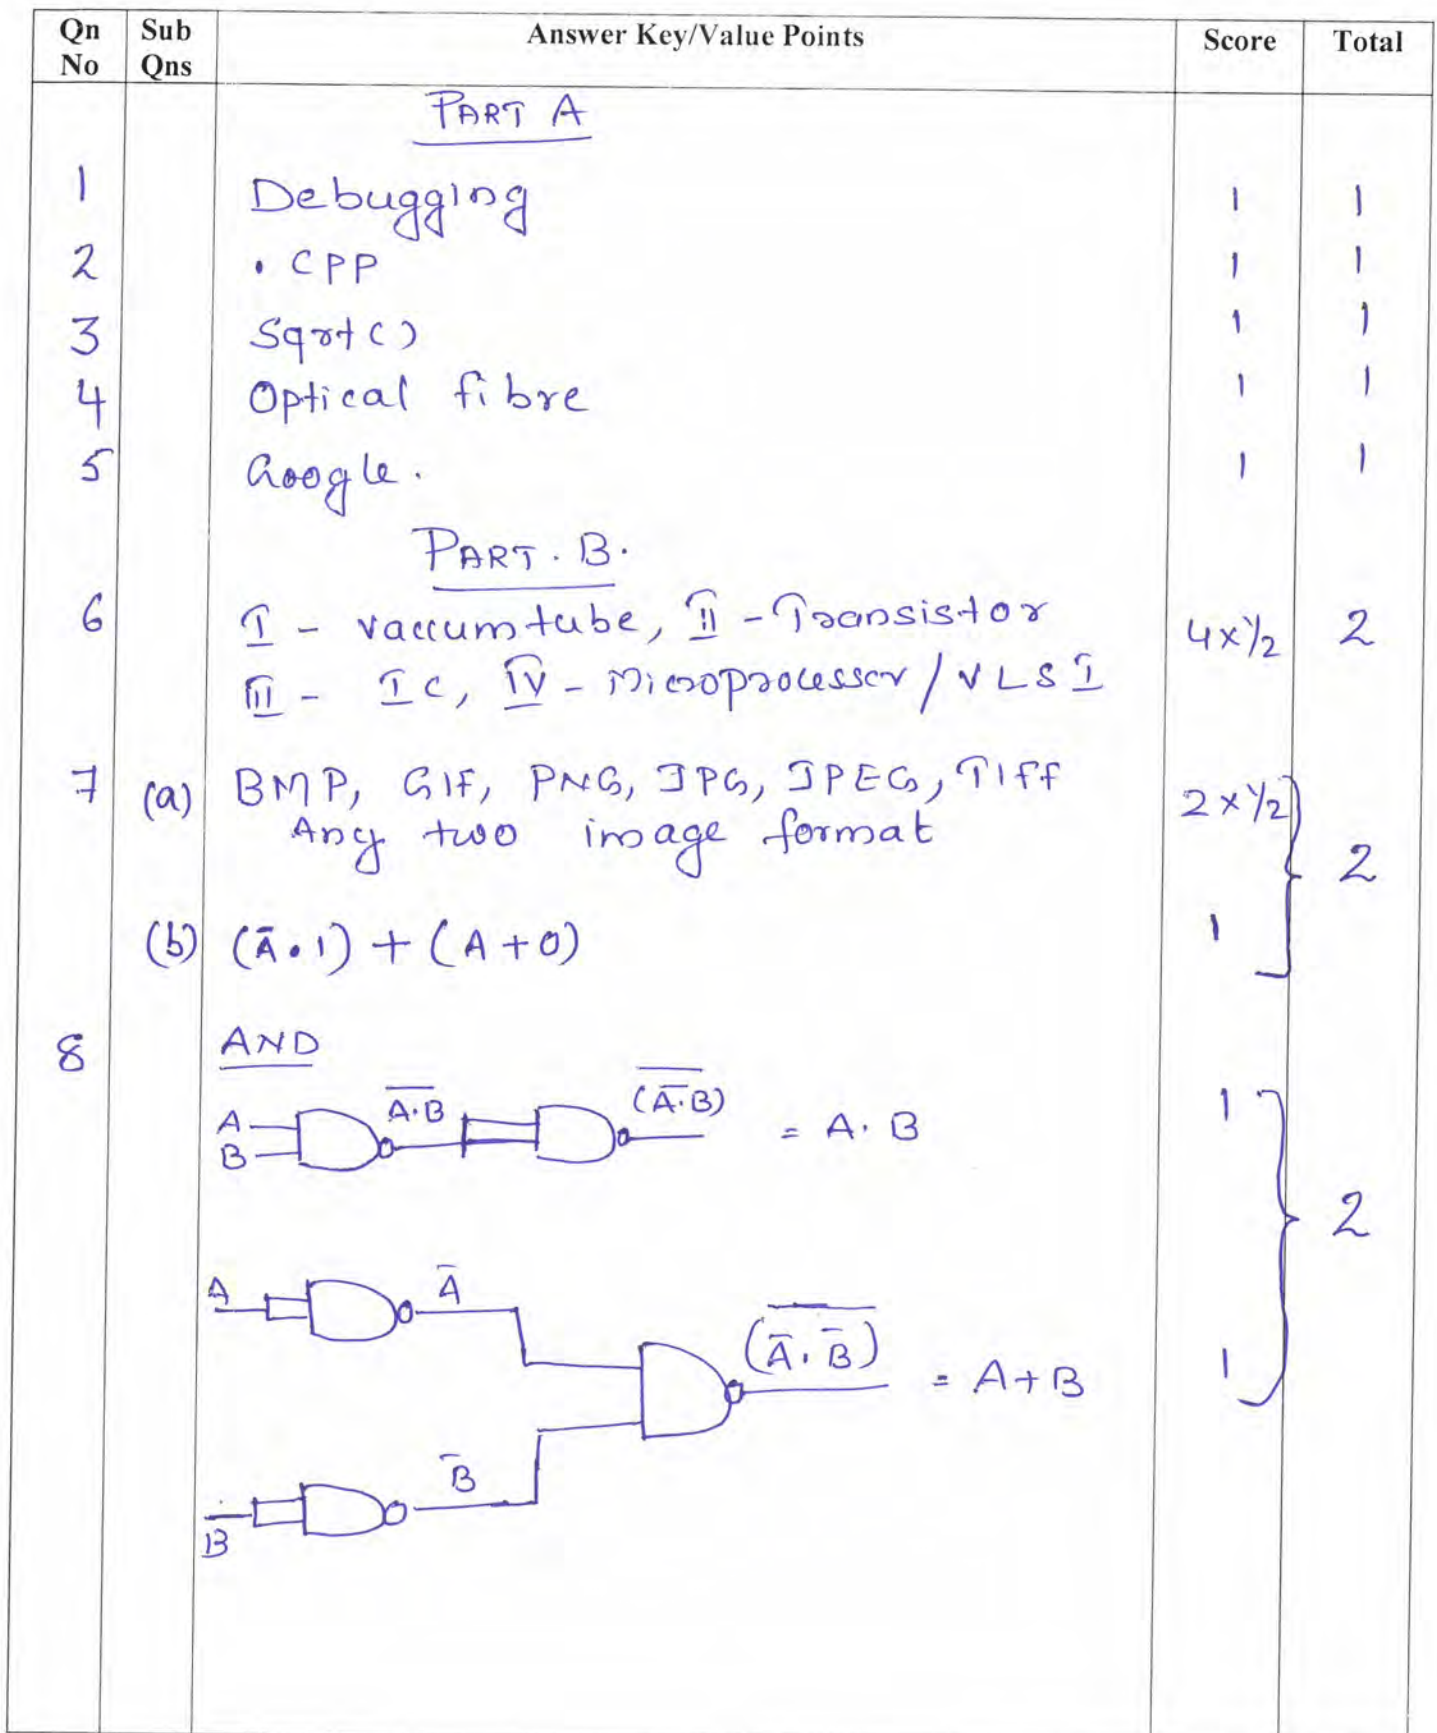 Qn No Sub Qns Answer Key/Value Points Score Total
PART A
1 Debugging 1 1
2 . CPP 1 1
3 Sqrt() 1 1
4 Optical fibre 1 1
5 Google. 1 1
PART . B.
6 I - vaccumtube, II - Transistor 4x½ 2
III - IC, IV - Microprocessor / VLSI
7 (a) BMP, GIF, PNG, JPG, JPEG, TIFF 2x½
Any two image format 2
(b) (Ā.1) + (A+0) 1
8 AND
A B A̅.̅B̅ (A̅.̅B̅)̅ = A.B 1
2
A Ā
(Ā.B̄)̅ = A+B 1
B B̄